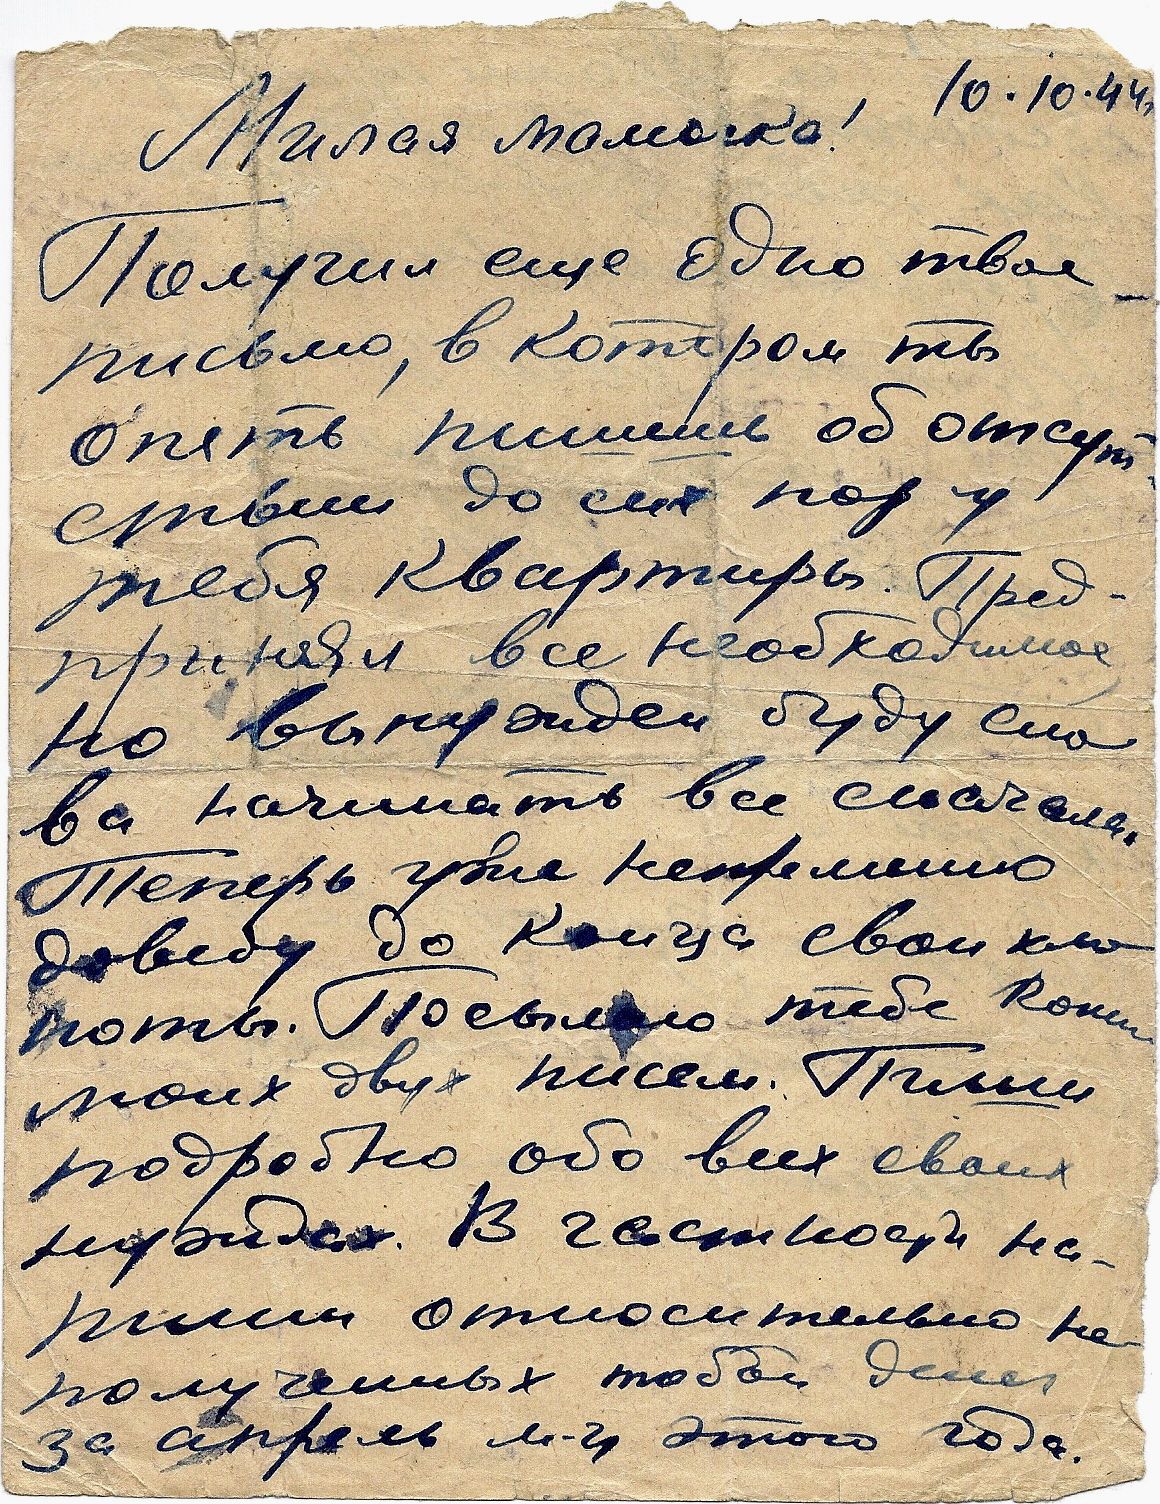 10.10.44г
Милая мамочка!
Получил еще одно твое
письмо, в котором ты
опять пишешь об отсут-
ствии до сих пор у
тебя квартиры. Пред-
принял все необходимое
но вынужден буду сно
ва начинать все сначала.
Теперь уже непременно
доведу до конца свои хло
поты. Посылаю тебе копии
моих двух писем. Пиши
подробно обо всех своих
нуждах. В частности на-
пиши относительно не-
полученных тобой денег
за апрель м-ц этого года.